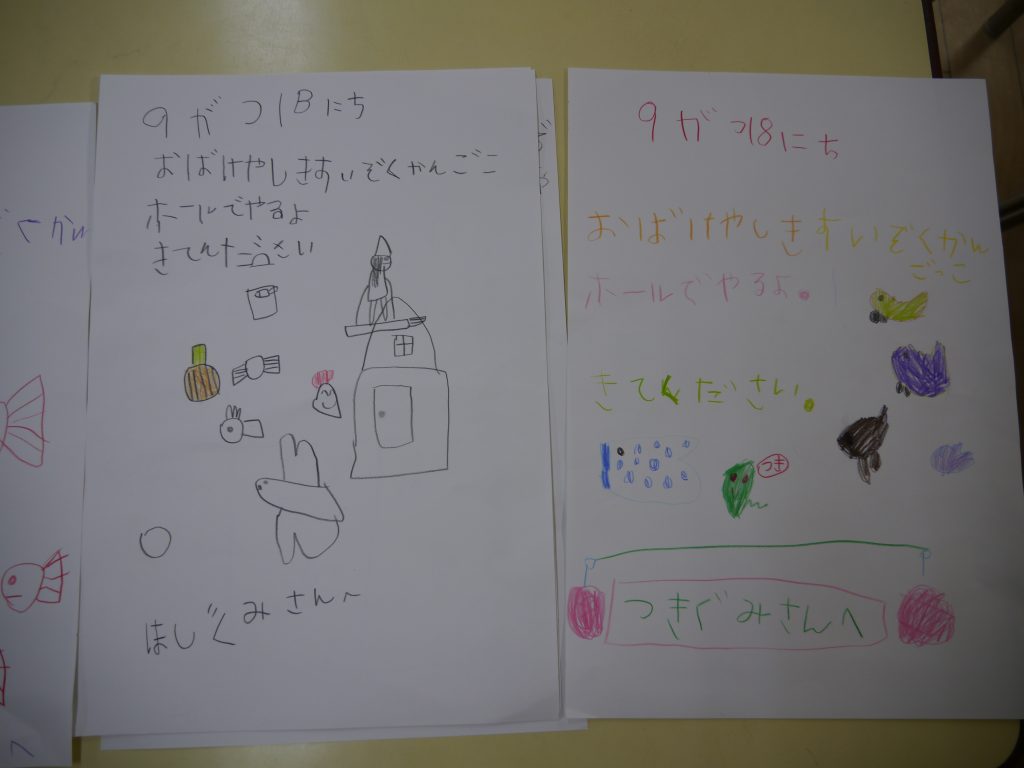 ぞくかん
へ
9がつ18にち
おばけやしきすいぞくかんごこ
ホールでやるよ
きてんださい
ほしぐみさんへ
9がつ18にち
おばけやしきすいぞくかん
ごっこ
ホールでやるよ。
きてください。
つき
つきぐみさんへ